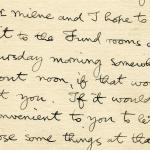 milne and I hope to
t to the Fund rooms o
ursday morning somewhe
out noon, if that wou
t you. If it would
onvenient to you to le
ose some things at tha